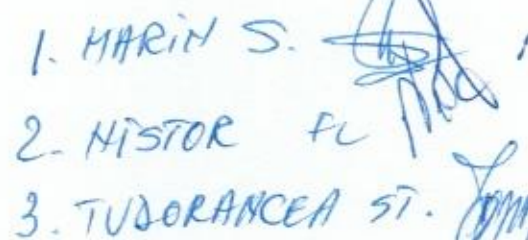 1. MARIN S.
2. NISTOR FL
3. TUDORANCEA ST.